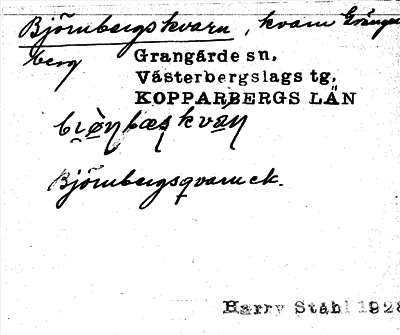 Björnbergskvarn, kvarn Gränges
berg Grangärde sn.
Västerbergslags tg.
KOPPARBERGS LÄN
Björnbergsqvarn ek.
Harry Ståhl 1928